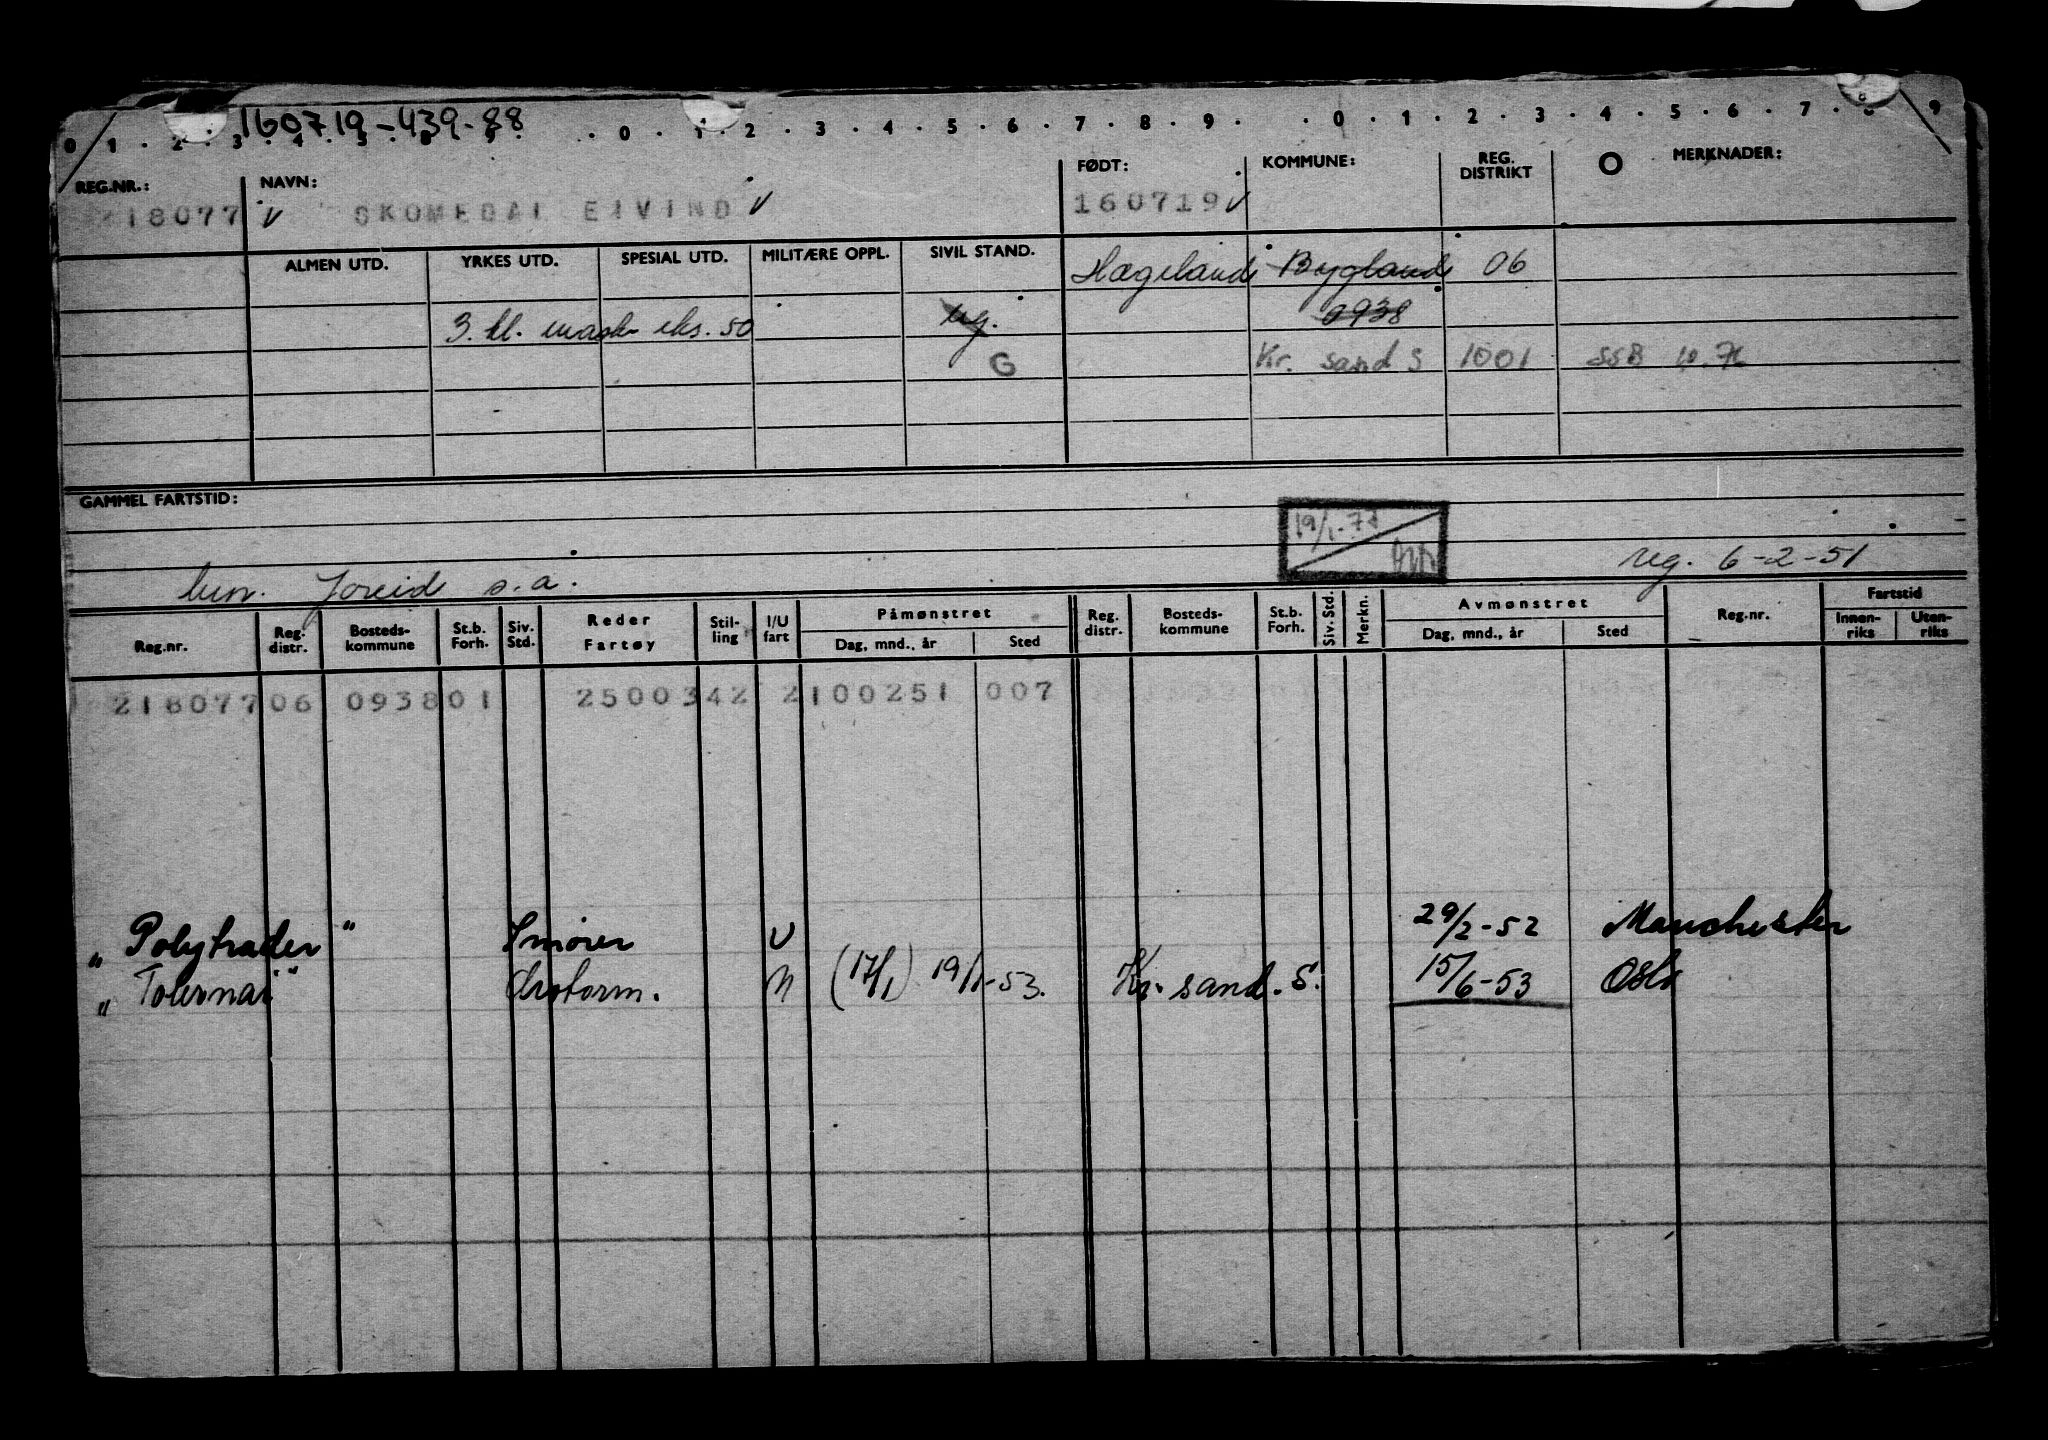 160719-439-88
0 1 . 2 . 3 . 4 . 5 . . . 0 . 1 . 2 . 3 . 4 . 5 . 6 . 7 . 8 . 9 . . 0 . 1 . 2 . 3 . 4 . 5 . 6 . 7 . 8 . 9
REG.NR.: NAVN: FØDT: KOMMUNE: REG. DISTRIKT O MERKNADER:
218077 SKOMEDAL EIVIND 160719
ALMEN UTD. YRKES UTD. SPESIAL UTD. MILITÆRE OPPL. SIVIL STAND. Hægeland Bygland 06
3. kl. mask eks. 50 ug. 0938
G Kr. sand S 1001 SSB 10.72
GAMMEL FARTSTID:
19/1-72
Joreid s.a. reg. 6-2-51
Reg.nr. Reg. distr. Bosteds- kommune St.b. Forh. Siv. Std. Reder Fartøy Stil- ling I/U fart Påmønstret Dag, mnd., år Sted Reg. distr. Bosteds- kommune St.b. Forh. Siv. Std. Merkn. Avmønstret Dag, mnd., år Sted Reg.nr. Fartstid Innen- riks Uten- riks
218077 06 0938 01 2500342 2100251 007
" Polytrader " Smører U 29/2-52 Manchester
" Tournai " (17/1) 19/1-53. Kr. sand. S. 15/6-53 Oslo